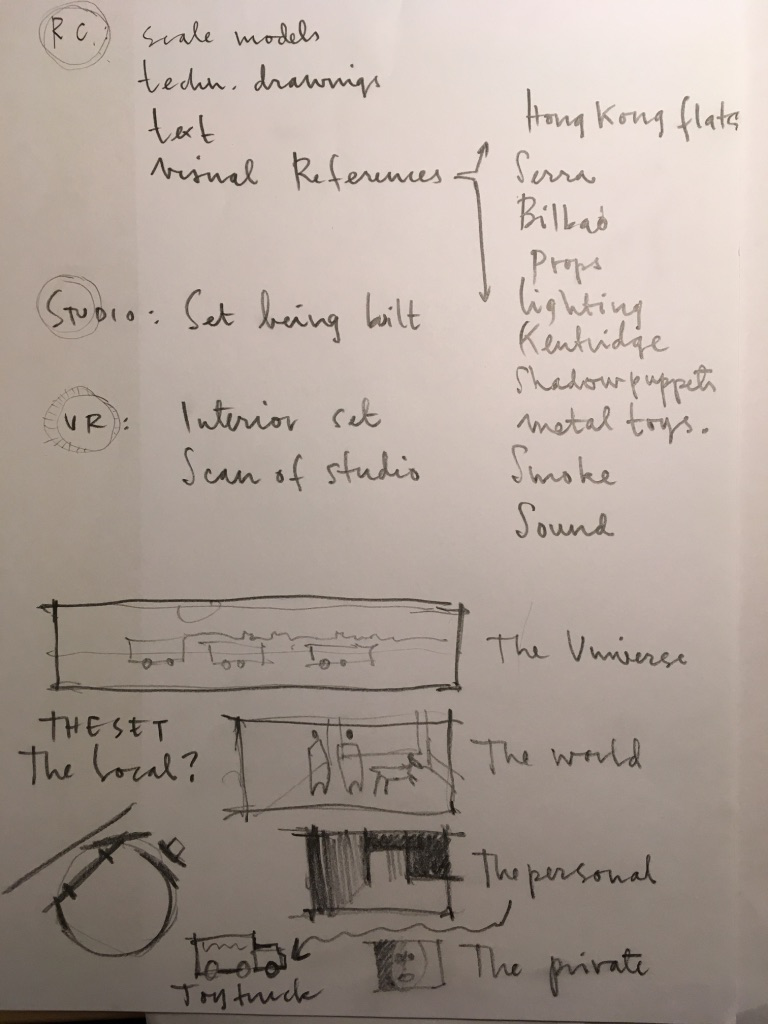 RC: scale models
techn. drawings
text
visual References
Hong Kong flats
Serra
Bilbao
Props
lighting
Kentridge
Shadowpuppets
metal toys.
Smoke
Sound
STUDIO: Set being bilt
VR: Interior set
Scan of studio
The Universe
THE SET
The Local?
The world
The personal
The private
Toytruck